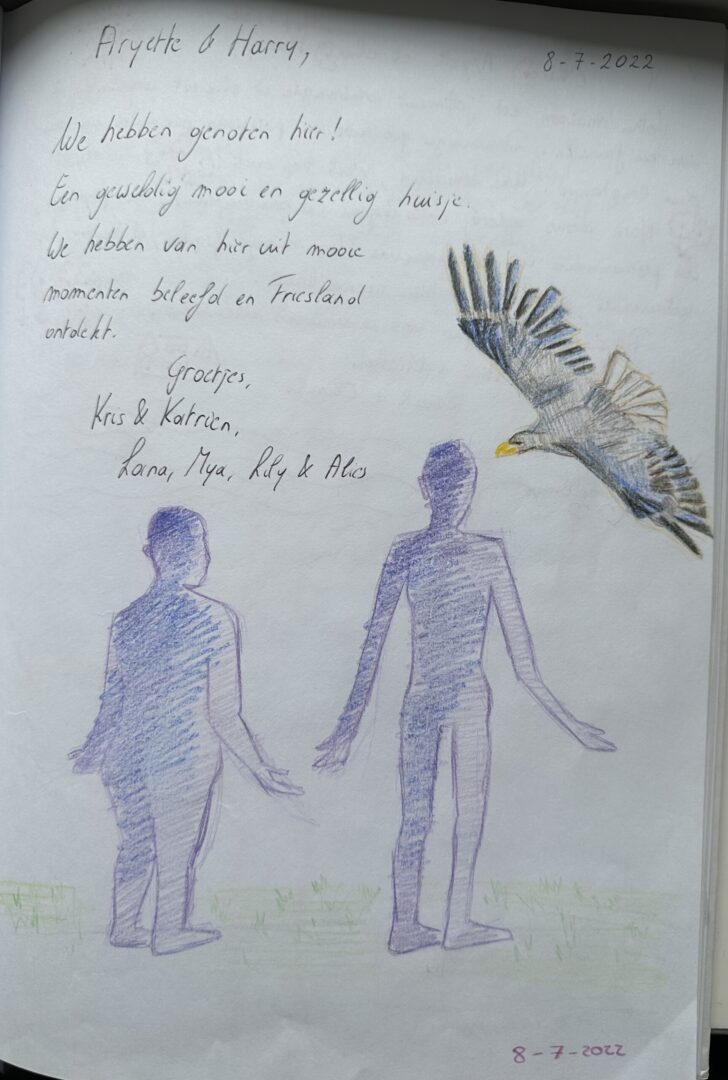 Aryette & Harry,
8-7-2022
We hebben genoten hier!
Een geweldig mooi en gezellig huisje.
We hebben van hier uit mooie
momenten beleefd en Friesland
ontdekt.
Groetjes,
Kris & Katrien,
Lana, Mya, Lily & Alies
8-7-2022